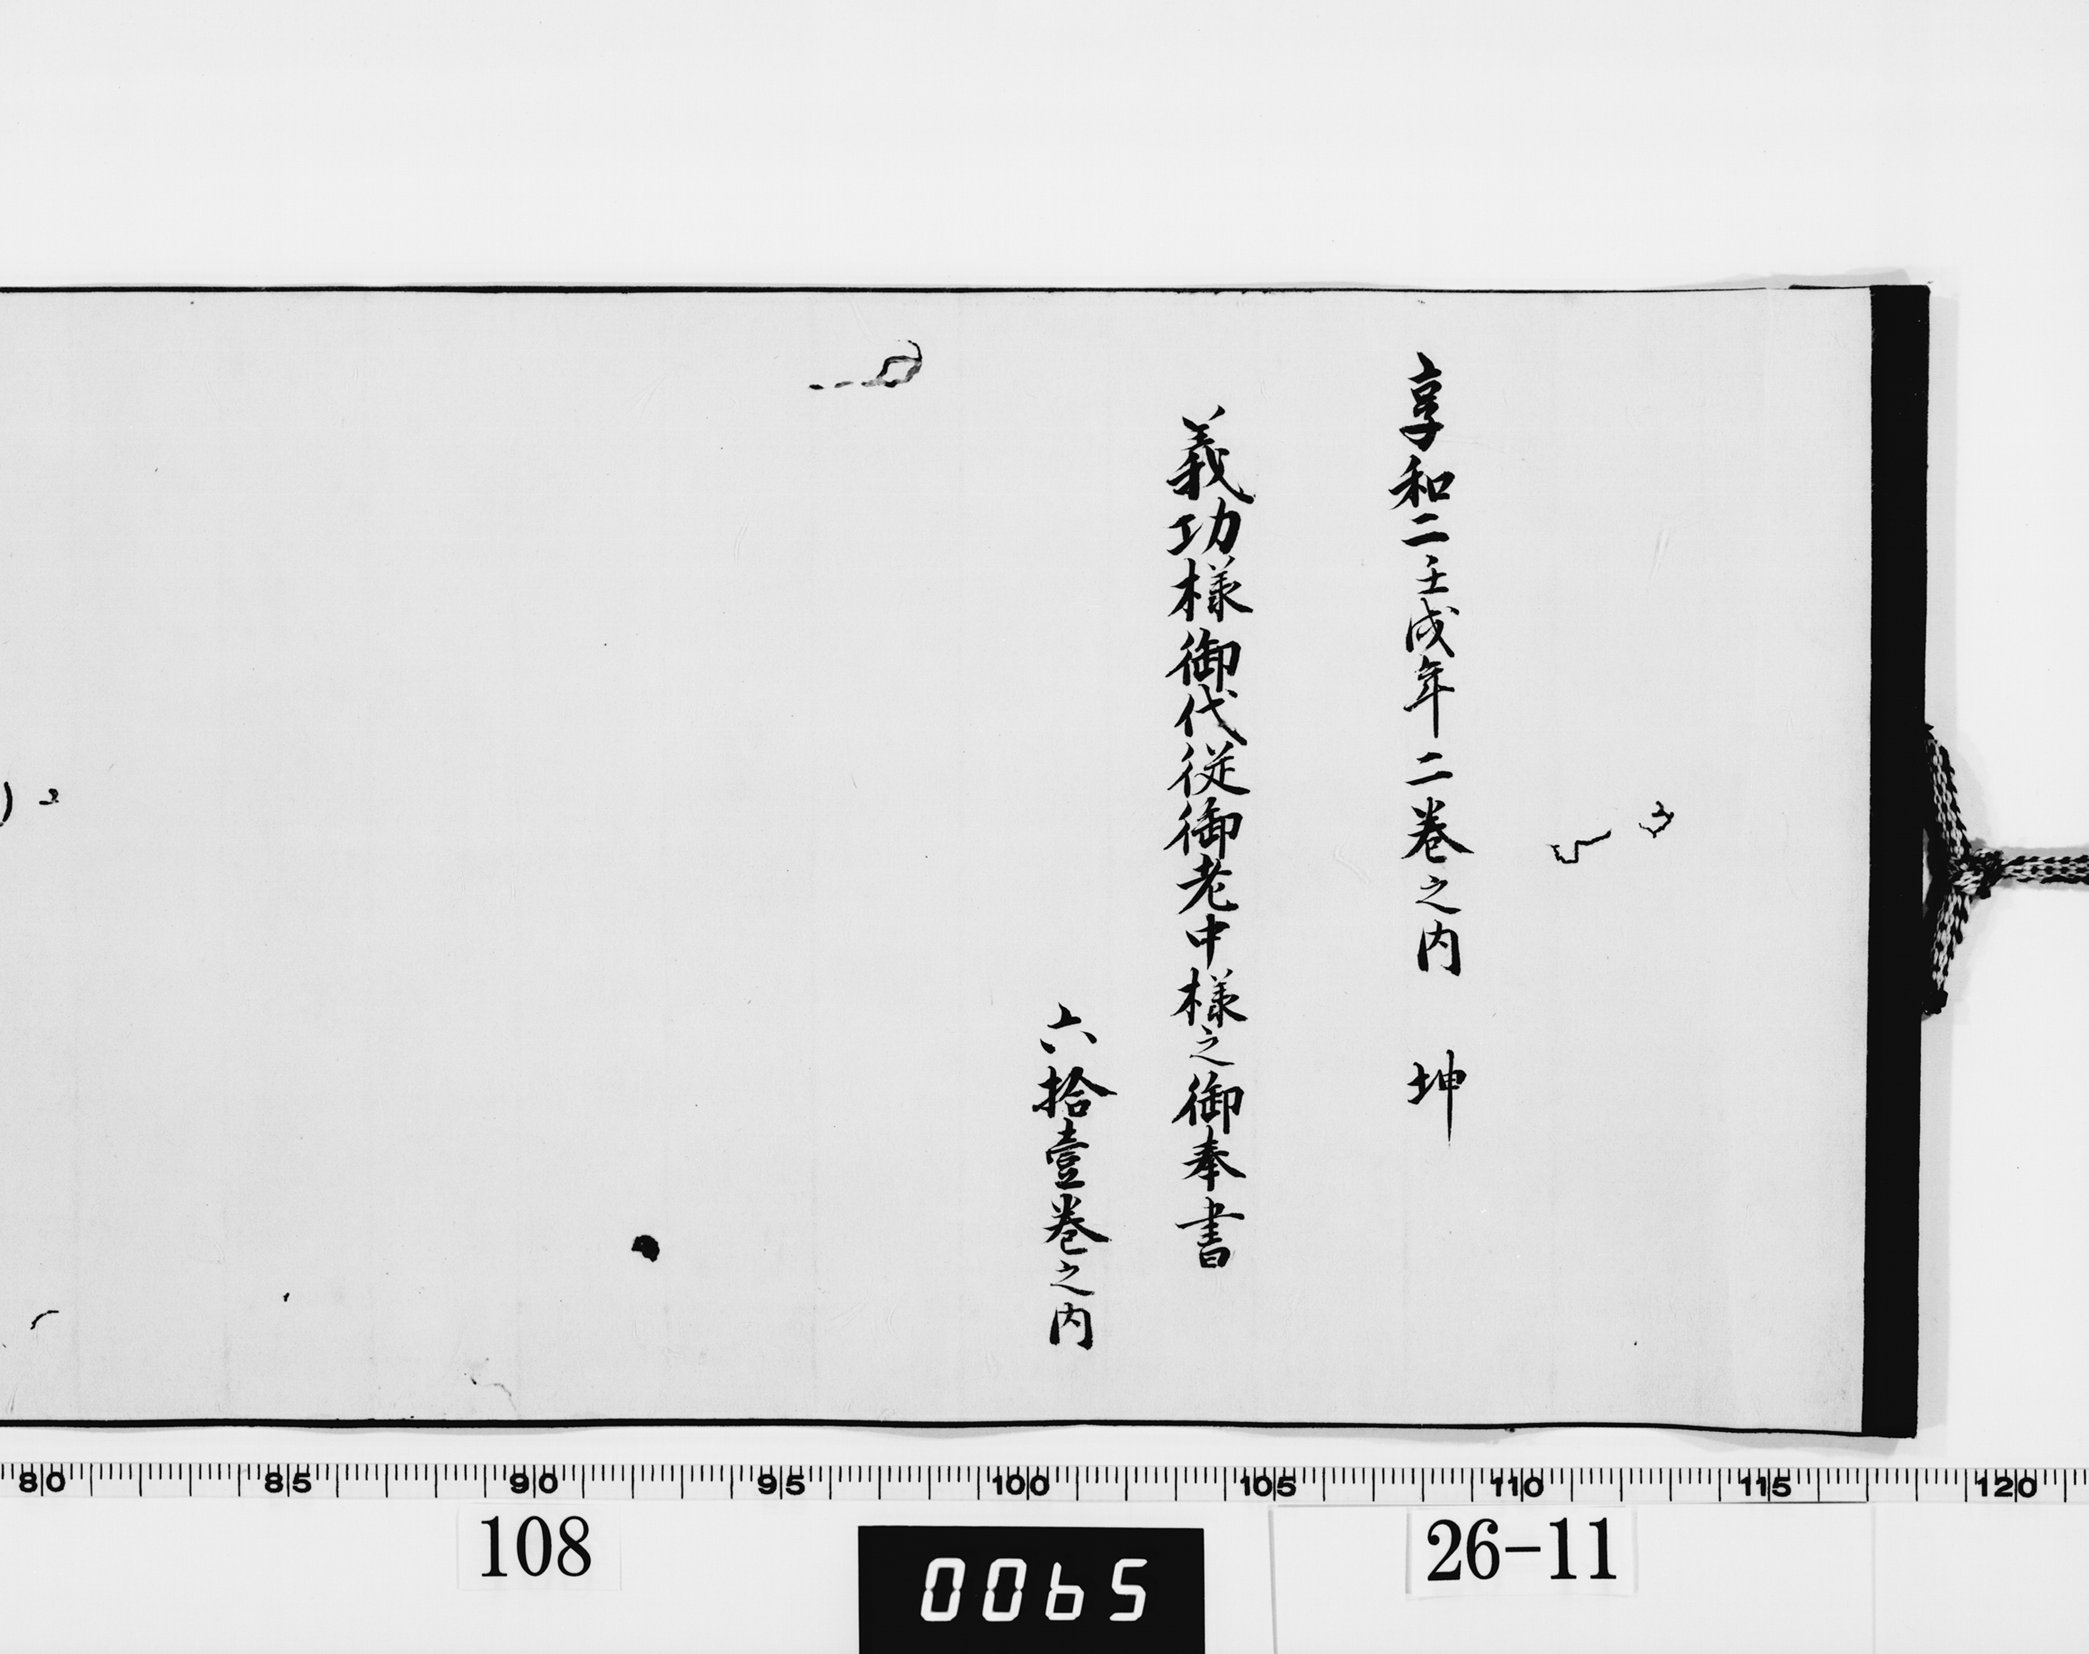 享和二壬戌年二巻之内　坤
義功様御代従御老中様之御奉書
六拾壹巻之内
80 85 90 95 100 105 110 115 120
108
0065
26-11